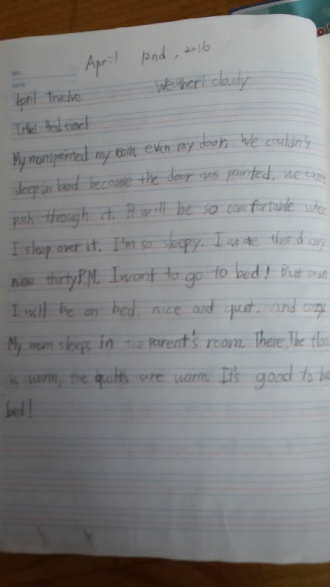 April 12nd, 2016
Weather: cloudy
April Twelve
Title: Bed time!
My mom painted my room, even my door. We couldn't
sleep in bed because the door was painted. we can't
push through it. It will be so comfortable when
I sleep over it. I'm so sleepy. I wrote this diary
nine thirty P.M. I want to go to bed! But soon
I will be on bed, nice and quit, and cozy
My mom sleeps in parent's room. There, The floor
is warm, the quilts are warm. It's good to be
bed!